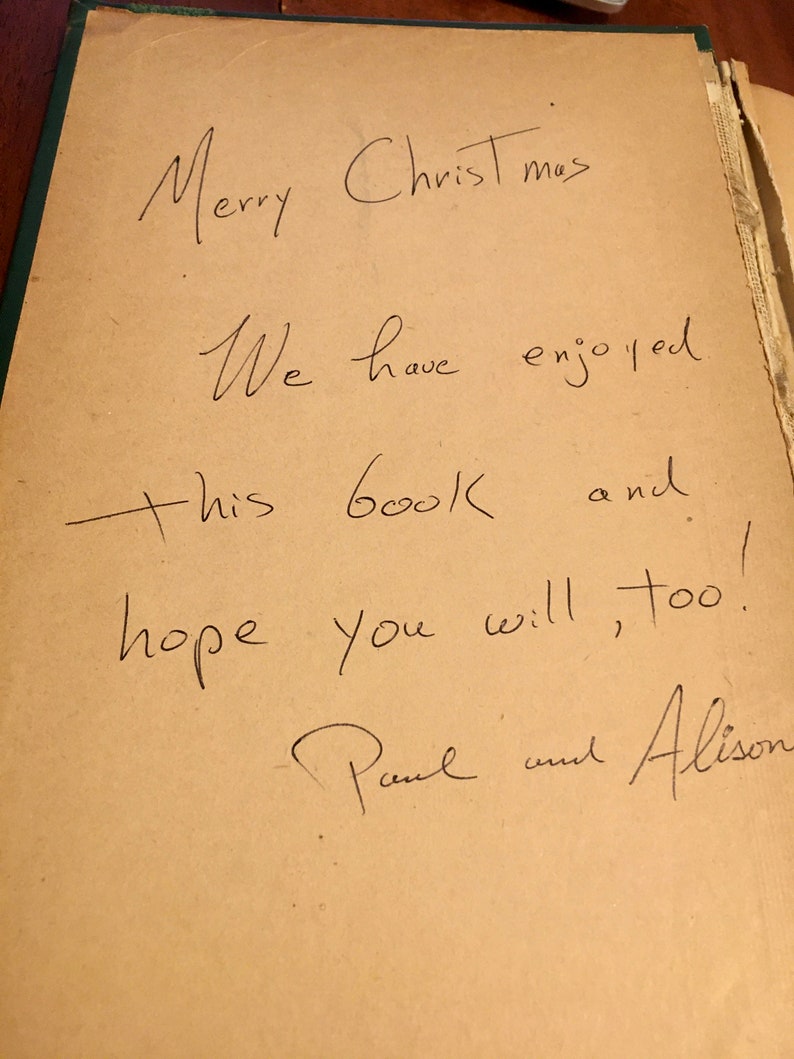 Merry Christmas
We have enjoyed
this book and
hope you will, too!
Paul and Alison